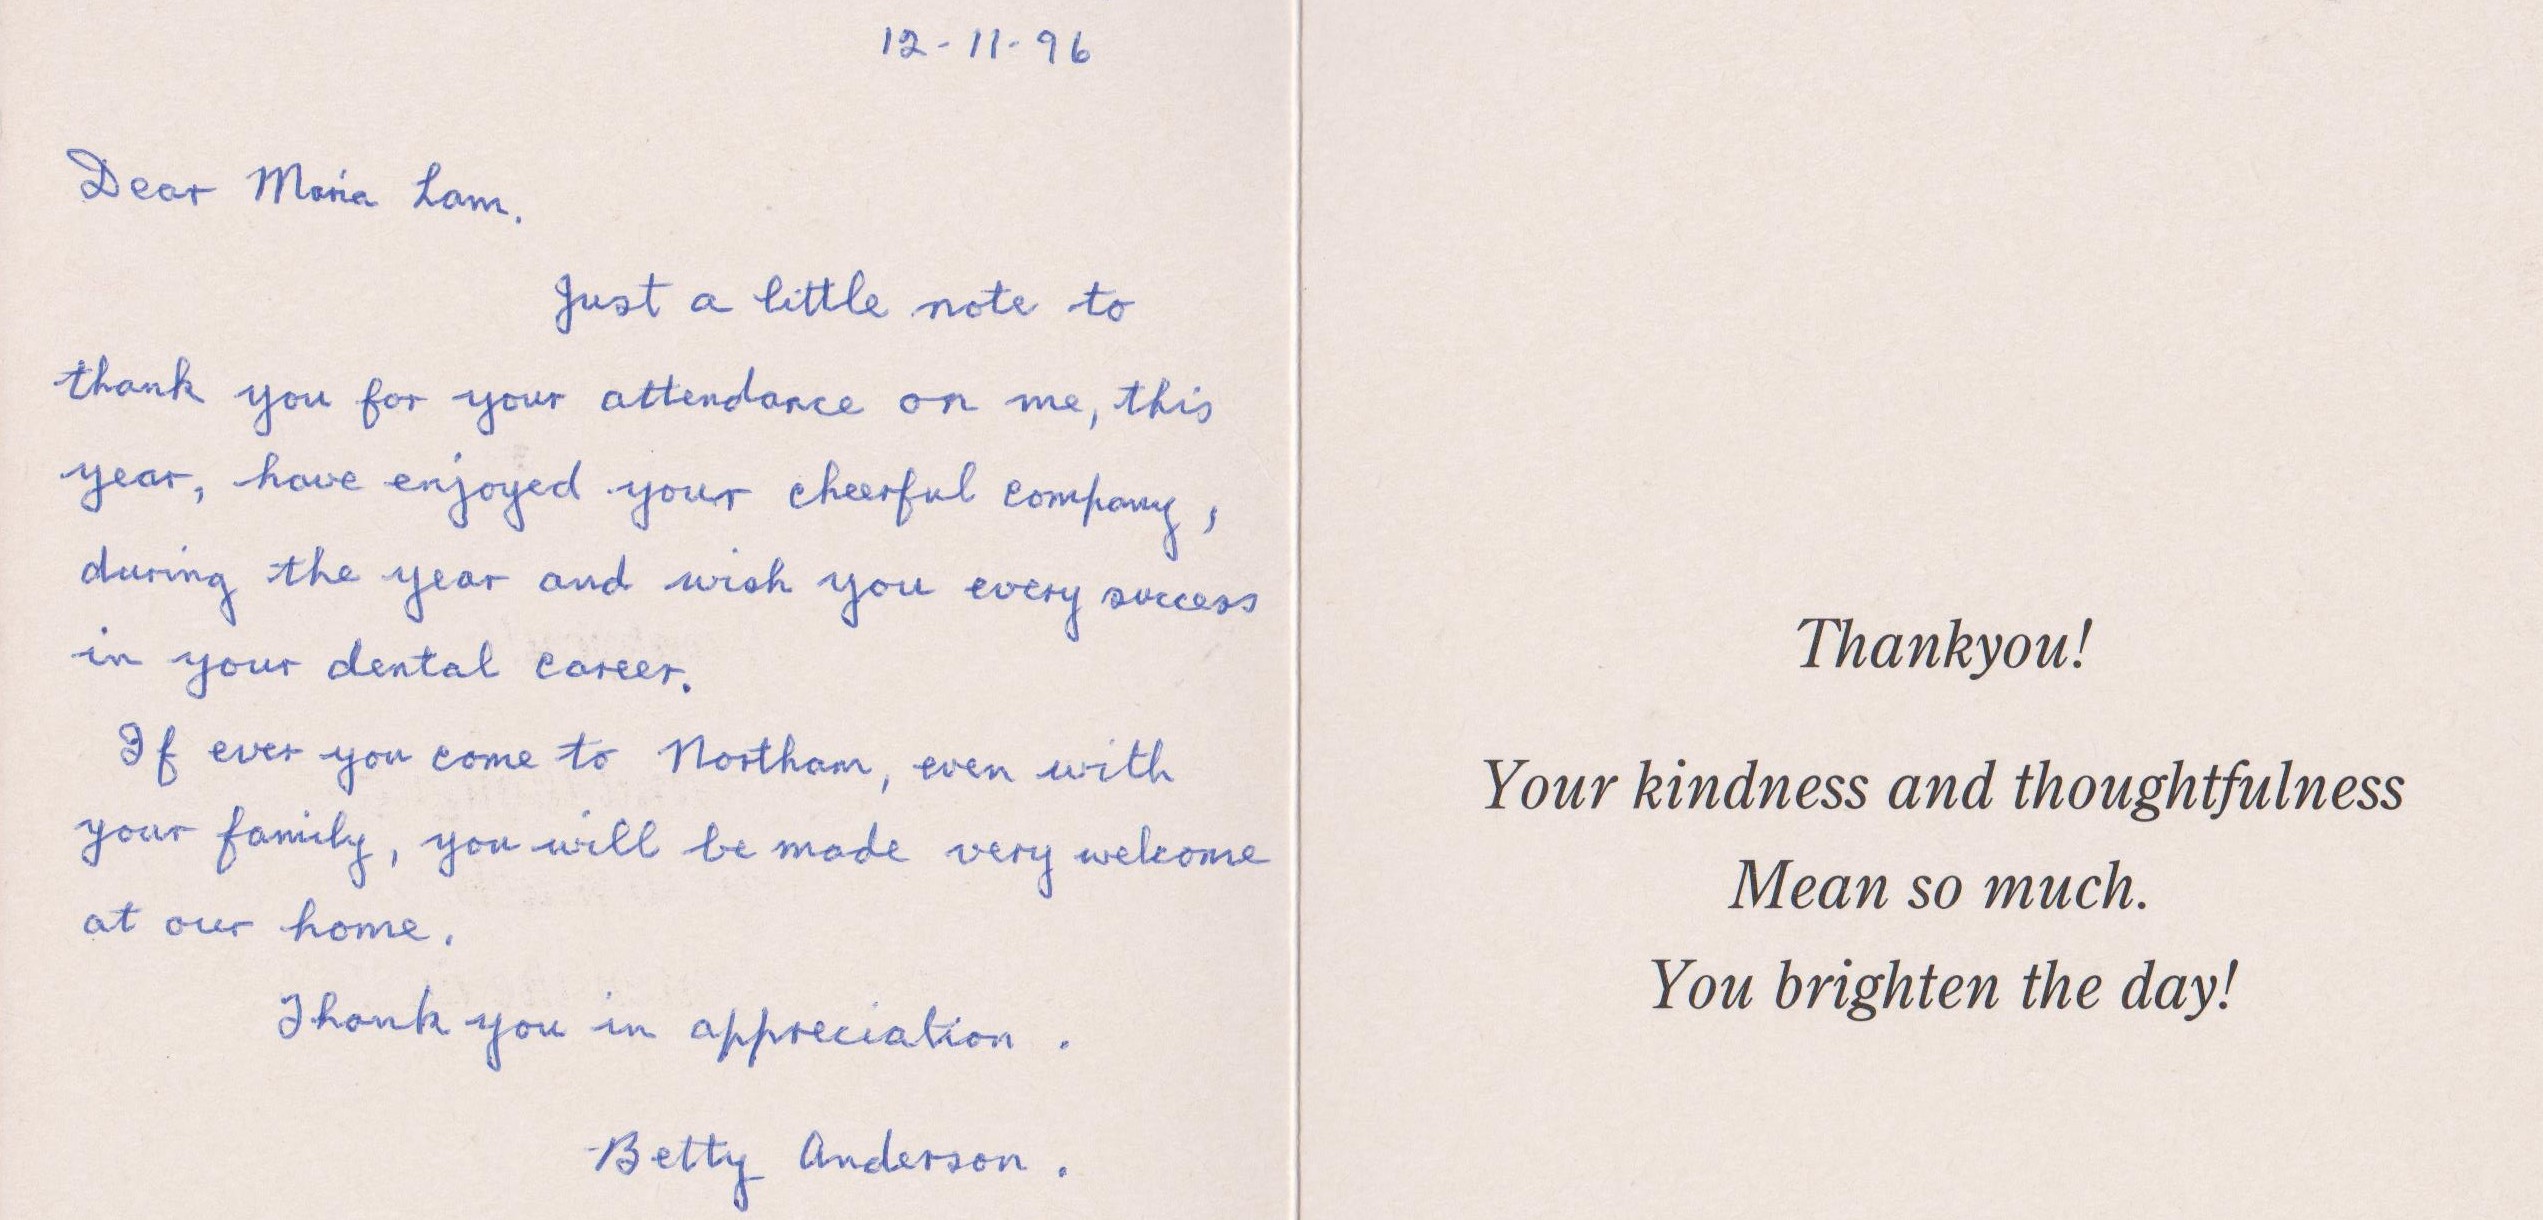 12-11-96
Dear Maria Lam.
Just a little note to
thank you for your attendance on me, this
year, have enjoyed your cheerful company,
during the year and wish you every success
in your dental career.
If ever you come to Northam, even with
your family, you will be made very welcome
at our home.
Thank you in appreciation.
Betty Anderson.
Thankyou!
Your kindness and thoughtfulness
Mean so much.
You brighten the day!